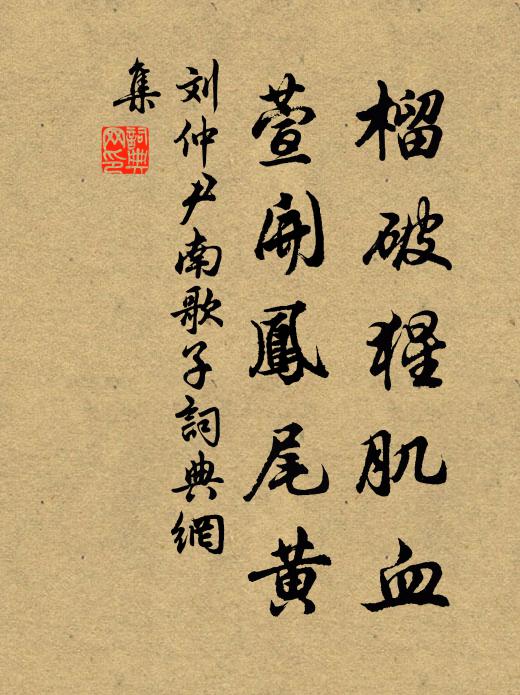 榴破猩肌血
萱開鳳尾黄
刘仲尹南歌子詞典網
集
詞典
网印